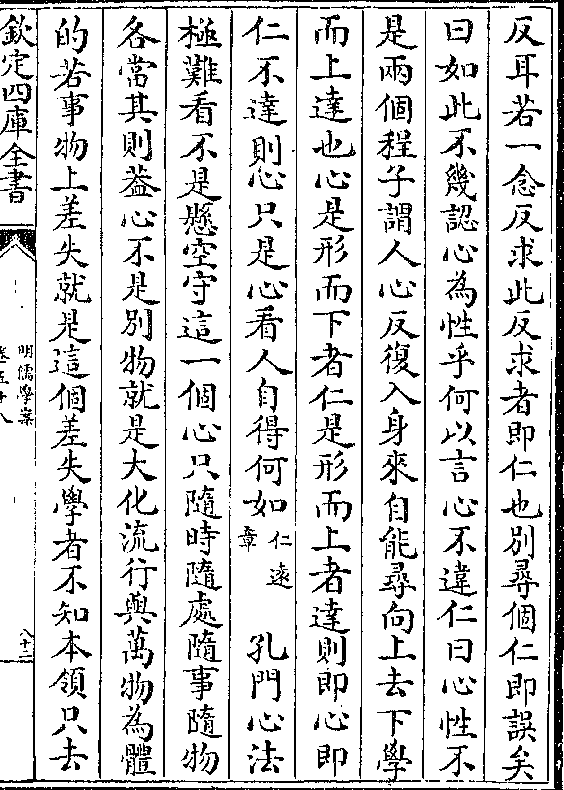 反耳若一念反求此反求者即仁也別尋個仁即誤矣
曰如此不幾認心為性乎何以言心不違仁曰心性不
是兩個程子謂人心反復入身來自能尋向上去下學
而上達也心是形而下者仁是形而上者達則即心即
仁不達則心只是心看人自得何如仁遠章　孔門心法
極難看不是懸空守這一個心只隨時隨處隨事隨物
各當其則葢心不是別物就是大化流行與萬物為體
的若事物上差失就是這個差失學者不知本領只去
欽定四庫全書
明儒學案
卷五十八
八十三